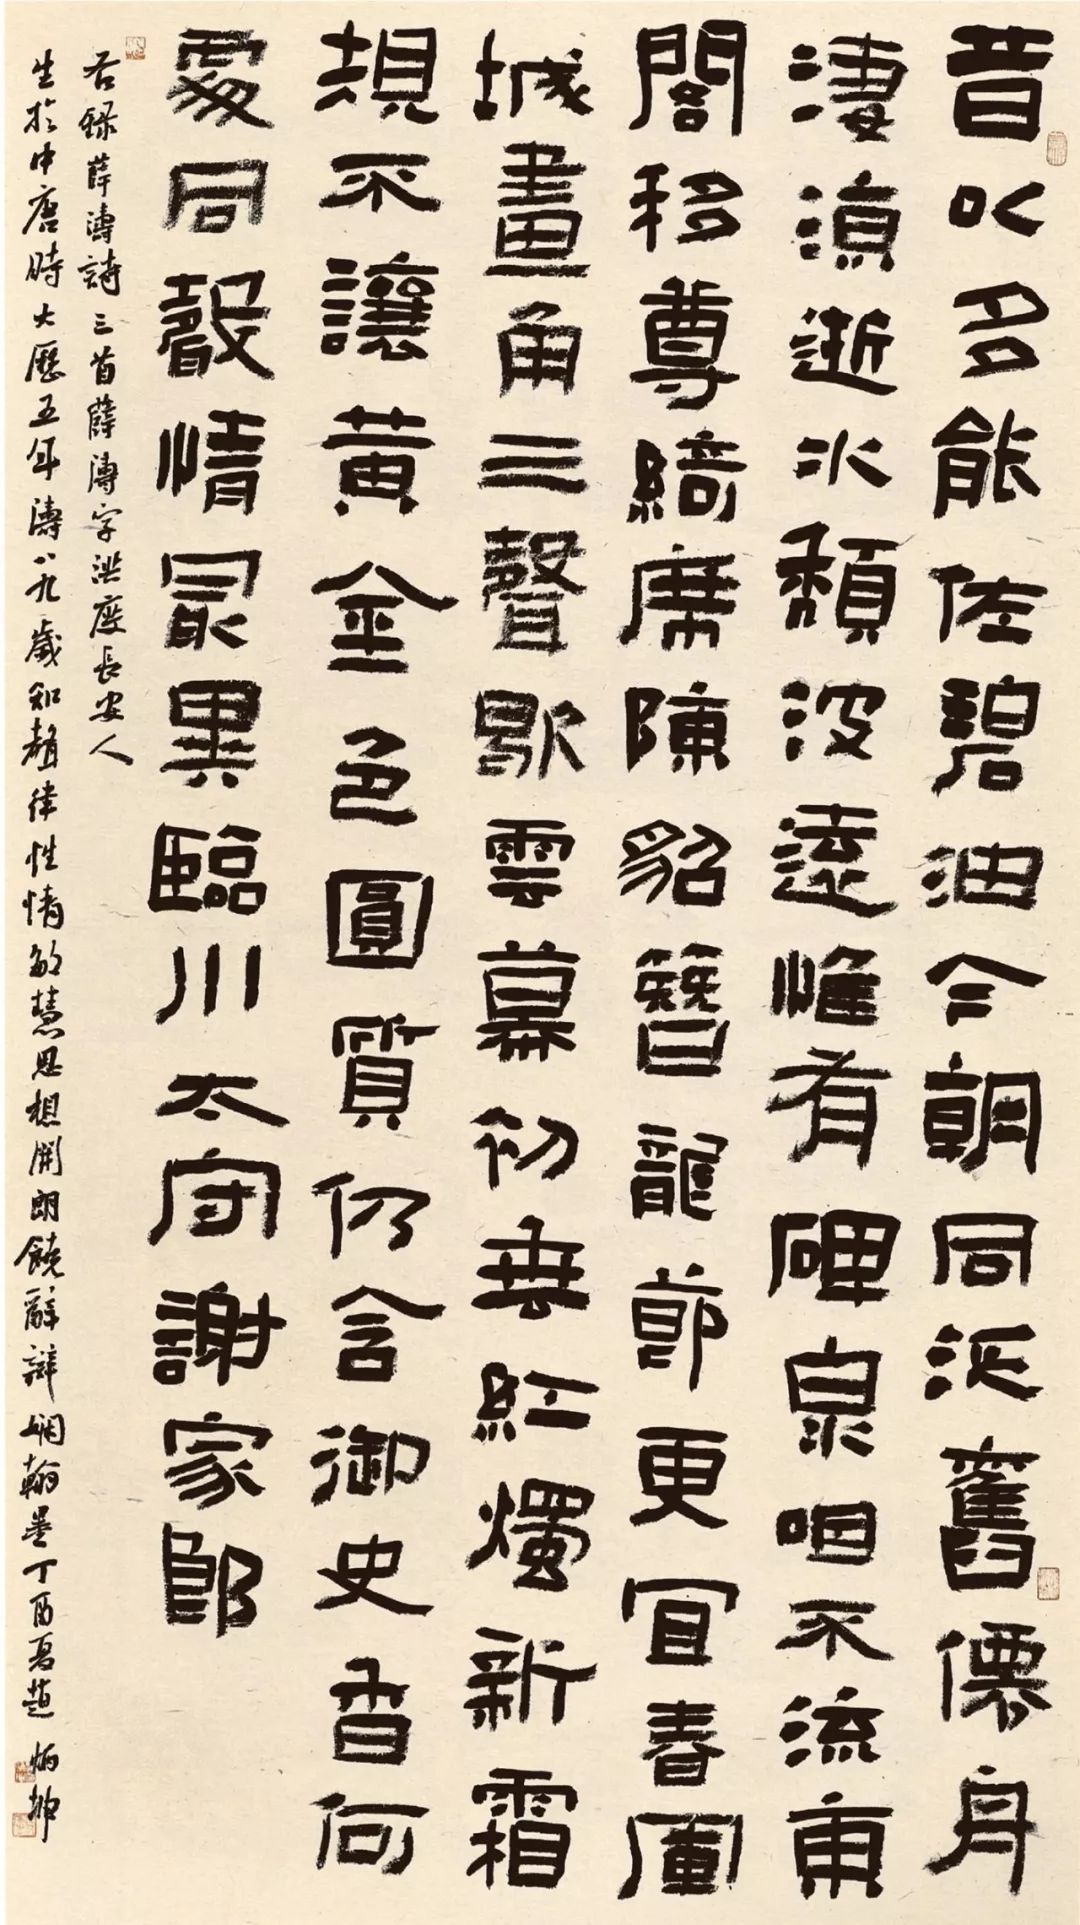 昔以多能佐碧油今朝同泛舊僊舟
淒涼逝水頹波遠惟有碑泉咽不流東
閣移尊綺席陳貂簪龍節更宜春軍
城畫角三聲歇雲幕初垂紅燭新霜
規不讓黃金色圓質仍含御史香何
處同聲情最異臨川太守謝家郎
右錄薛濤詩三首薛濤字洪度長安人
生於中唐時大歷五年濤八九歲知聲律性情敏慧思想開朗饒辭辯嫻翰墨丁酉夏趙炳坤